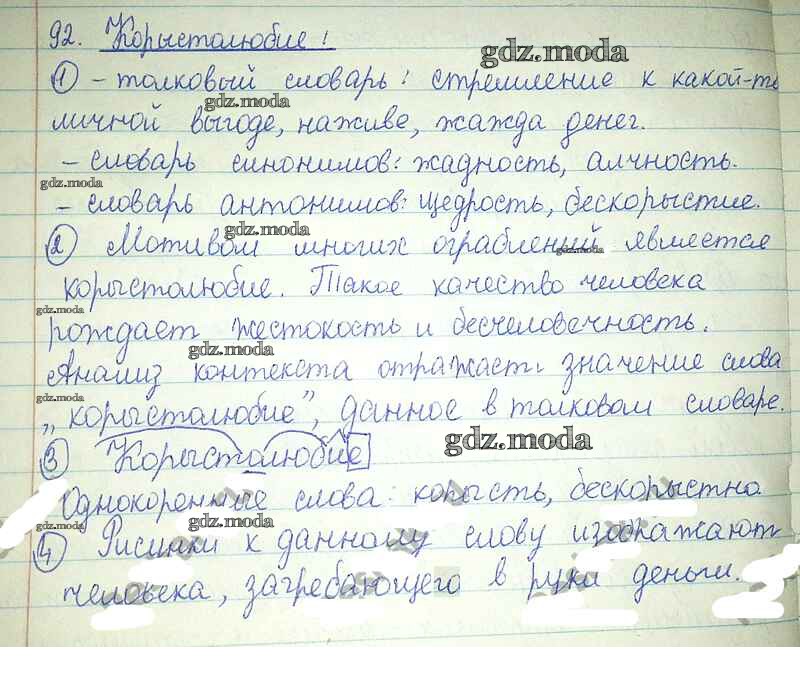 92. Корыстолюбие!
gdz.moda
1 – толковый словарь: стремление к какой-то
gdz.moda
личной выгоде, наживе, жажда денег.
– словарь синонимов: жадность, алчность.
gdz.moda
– словарь антонимов: щедрость, бескорыстие.
gdz.moda
2 Мотивом многих ограблений является
gdz.moda
корыстолюбие. Такое качество человека
gdz.moda
рождает жестокость и бесчеловечность.
gdz.moda
Анализ контекста отражает значение слова
gdz.moda
„корыстолюбие", данное в толковом словаре.
3 Корыстолюбие
gdz.moda
gdz.moda
Однокоренные слова: корысть, бескорыстно
gdz.moda
gdz.moda
4 Рисунки к данному слову изображают
человека, загребающего в руки деньги.